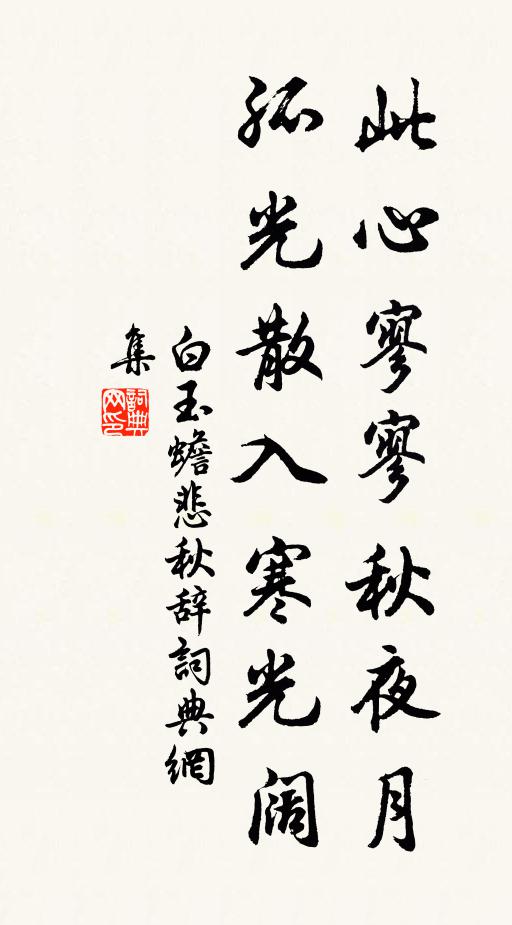 此心寥寥秋夜月
孤光散入寒光阔
白玉蟾悲秋辞詞典網
集
詞典
网印